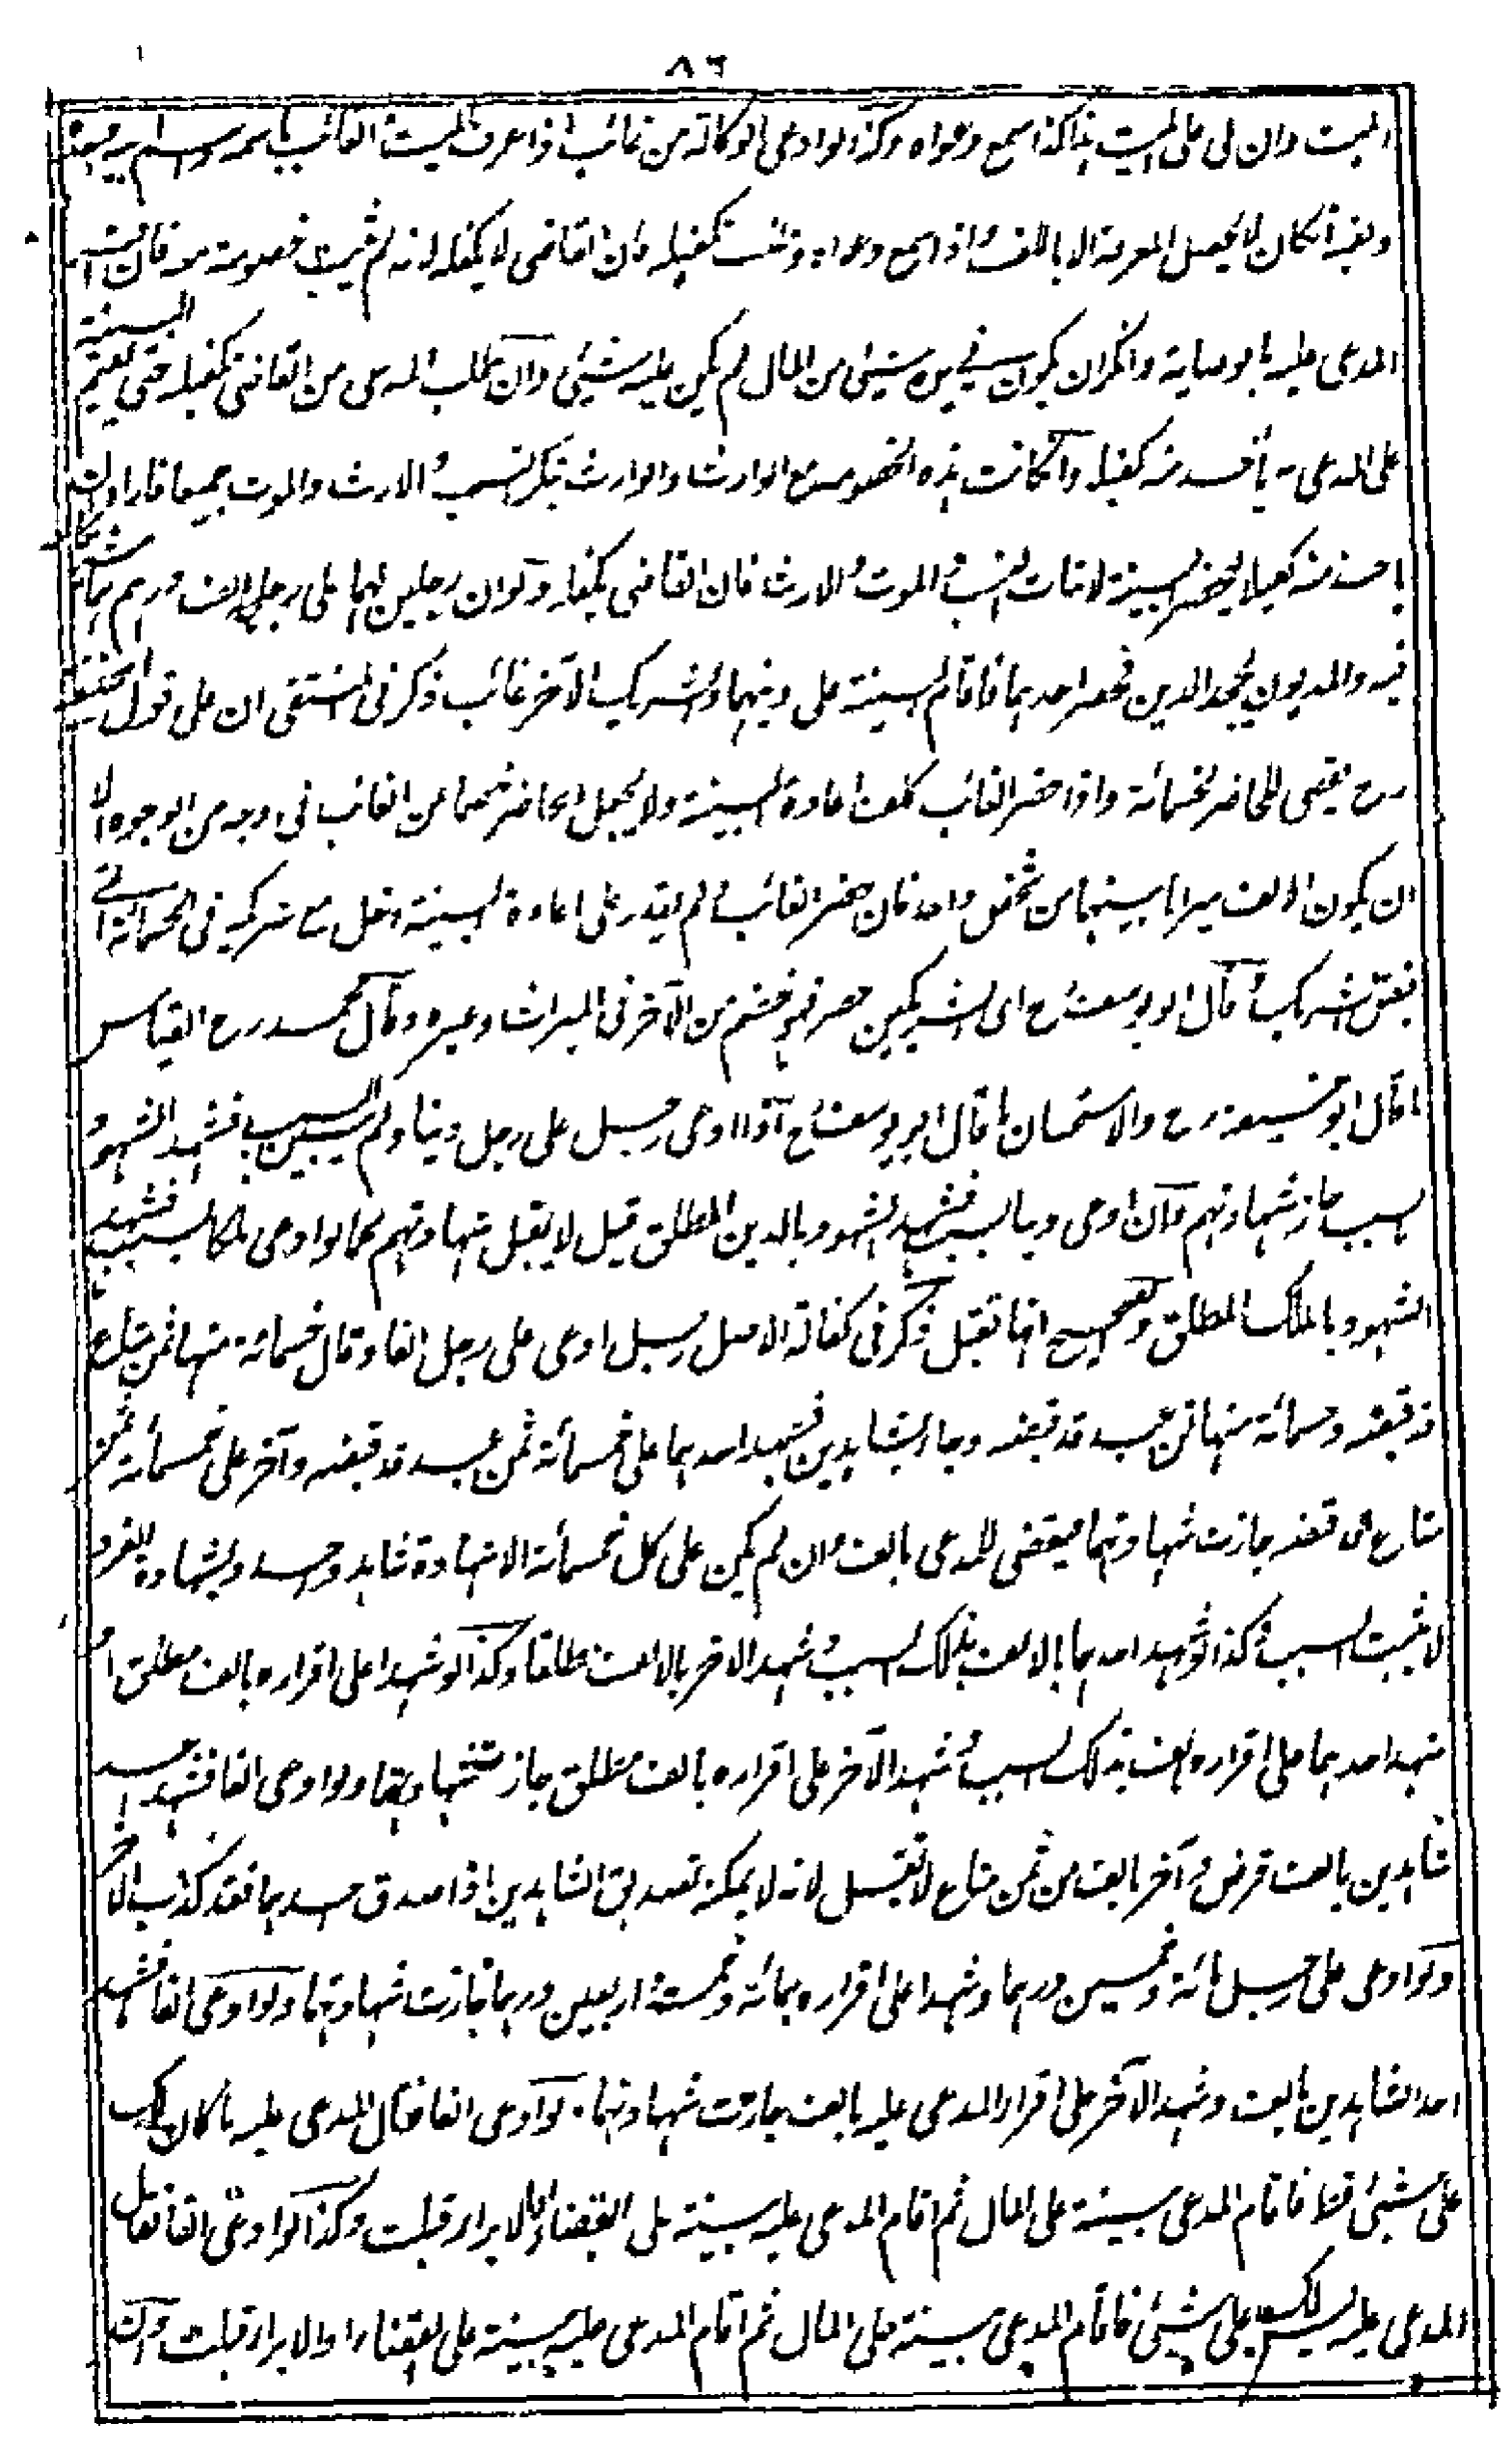 ٨٦
الميت وان لى على الميت كذا كذا سمع دعواه وكذا لو ادعى الوكالة من غائب اذا عرف الميت او الغائب باسمه واسم ابيه
وبغيره انكان لا يحصل المعرفة الا بالالف اذا سمع دعواه وطلب تكفيله فان القاضى لا يكفله لانه لم يثبت خصومته فان
المدعى عليه بالوصاية وانكر ان يكون فى يده شيئ من المال لم يكن عليه شيئ وان طلب المدعى من القاضى تكفيله حتى يقيم البينة
على المدعى به يأخذ منه كفيلا وانكانت هذه الخصومة مع الوارث والوارث ينكر النسب والارث والموت جميعا فاراد ان
ياخذ منه كفيلا ليحضر البينة لاثبات النسب والموت والارث فان القاضى يكفله ولو ان رجلين لهما على رجل الف درهم
فيه والمديون يجحد الدين فحضر احدهما فاقام البينة على دينهما والشريك الآخر غائب ذكر فى المنتقى ان على قول ابيحنيفة
رح يقضى للحاضر بخمسائة واذا حضر الغائب كلف اعادة البينة ولا يجعل الحاضر خصما عن الغائب فى وجه من الوجوه الا
ان يكون الالف ميراثا بينهما من شخص واحد فان حضر الغائب ولم يقدر على اعادة البينة دخل مع شريكه فى الخمسائة التى
قال ابو يوسف رح اى الشريكين حضر فهو خصم عن الآخر فى الميراث وغيره وقال محمد رح القياس
ما قال ابو حنيفة رح والاستحسان ما قال ابو يوسف رح اذا ادعى رجل على رجل دينا ولم يبين السبب فشهد الشهود
بسبب جاز شهادتهم وان ادعى دينا بسبب فشهد الشهود بالدين المطلق قيل لا يقبل شهادتهم كما لو ادعى ملكا بسبب فشهد
الشهود بالملك المطلق والصحيح انها تقبل ذكر فى كفالة الاصل رجل ادعى على رجل الفا وقال خمسائة منها ثمن متاع
قد قبضه وخمسائة منها ثمن عبد قد قبضه وجاء بشاهدين فشهد احدهما على خمسائة ثمن عبد قد قبضه وآخر على خمسائة ثمن
متاع قد قبضه جازت شهادتهما فيقضى للمدعى بالف وان لم يكن على كل خمسائة الا شهادة شاهد واحد وبشهادة الفرد
لا يثبت السبب وكذا لو شهد احدهما بالالف بذلك السبب وشهد الاخر بالالف مطلقا وكذا لو شهدا على اقراره بالف مطلق او
شهد احدهما على اقراره بالف بذلك السبب وشهد الآخر على اقراره بالف مطلق جاز شهادتهما ولو ادعى الفا فشهد احد
شاهدين بالف قرض وآخر بالف من ثمن متاع لا تقبل لانه لا يمكنه تصديق الشاهدين اذا صدق احدهما فقد كذب الآخر
ولو ادعى على رجل مائة وخمسين درهما وشهدا على اقراره بمائة وخمسة اربعين درهما جازت شهادتهما ولو ادعى الفا فشهد
احد الشاهدين بالف وشهد الآخر على اقرار المدعى عليه بالف جازت شهادتهما. لو ادعى الفا فقال المدعى عليه ما كان لك
على شيئ قط فاقام المدعى بينة على المال ثم اقام المدعى عليه بينة على القضاء او الابراء قبلت وكذا لو ادعى الفا فقال
المدعى عليه ليس لك على شيئ فاقام المدعى بينة على المال ثم اقام المدعى عليه بينة على القضاء او الابراء قبلت وان